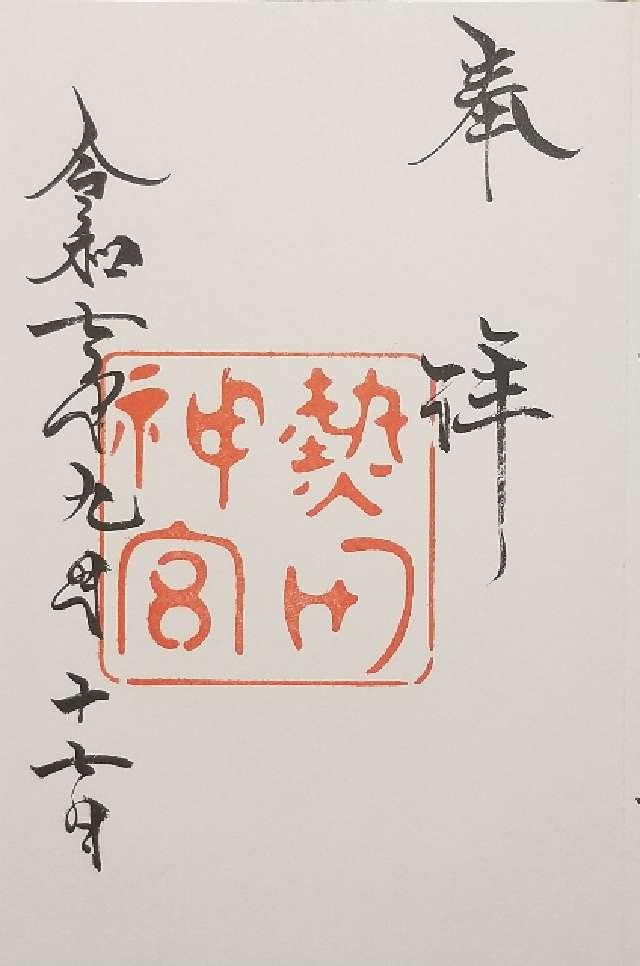 奉拝
熱田神宮
令和七年九月十七日